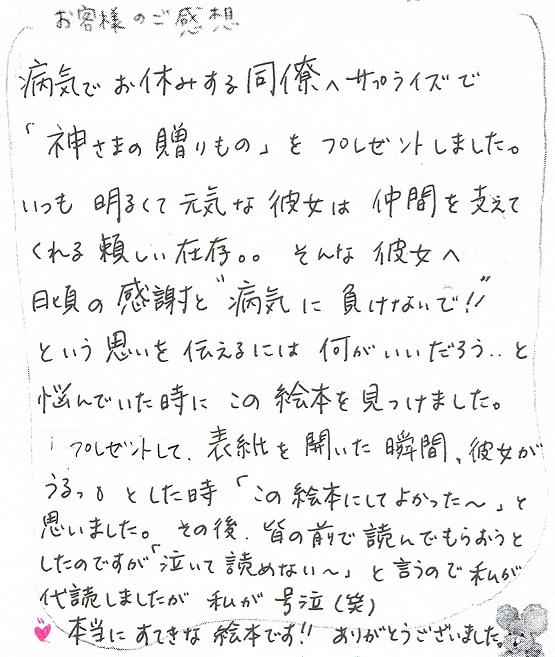 お客様のご感想
病気で お休みする同僚へサプライズで
「神さまの贈りもの」を プレゼントしました。
いつも 明るくて 元気な 彼女は 仲間を支えて
くれる 頼しい在存。。 そんな 彼女へ
日頃の 感謝と"病気に 負けないで!!"
という 思いを 伝えるには 何がいいだろう‥と
悩んでいた時に この 絵本を 見つけました。
プレゼントして、表紙を 開いた 瞬間、彼女が
うるっ。とした時「この絵本にしてよかった〜」と
思いました。 その後、皆の前で 読んでもらおうと
したのですが「泣いて 読めない〜」と言うので 私が
代読しましたが 私が 号泣(笑)
本当に すてきな 絵本です!! ありがとうございました。